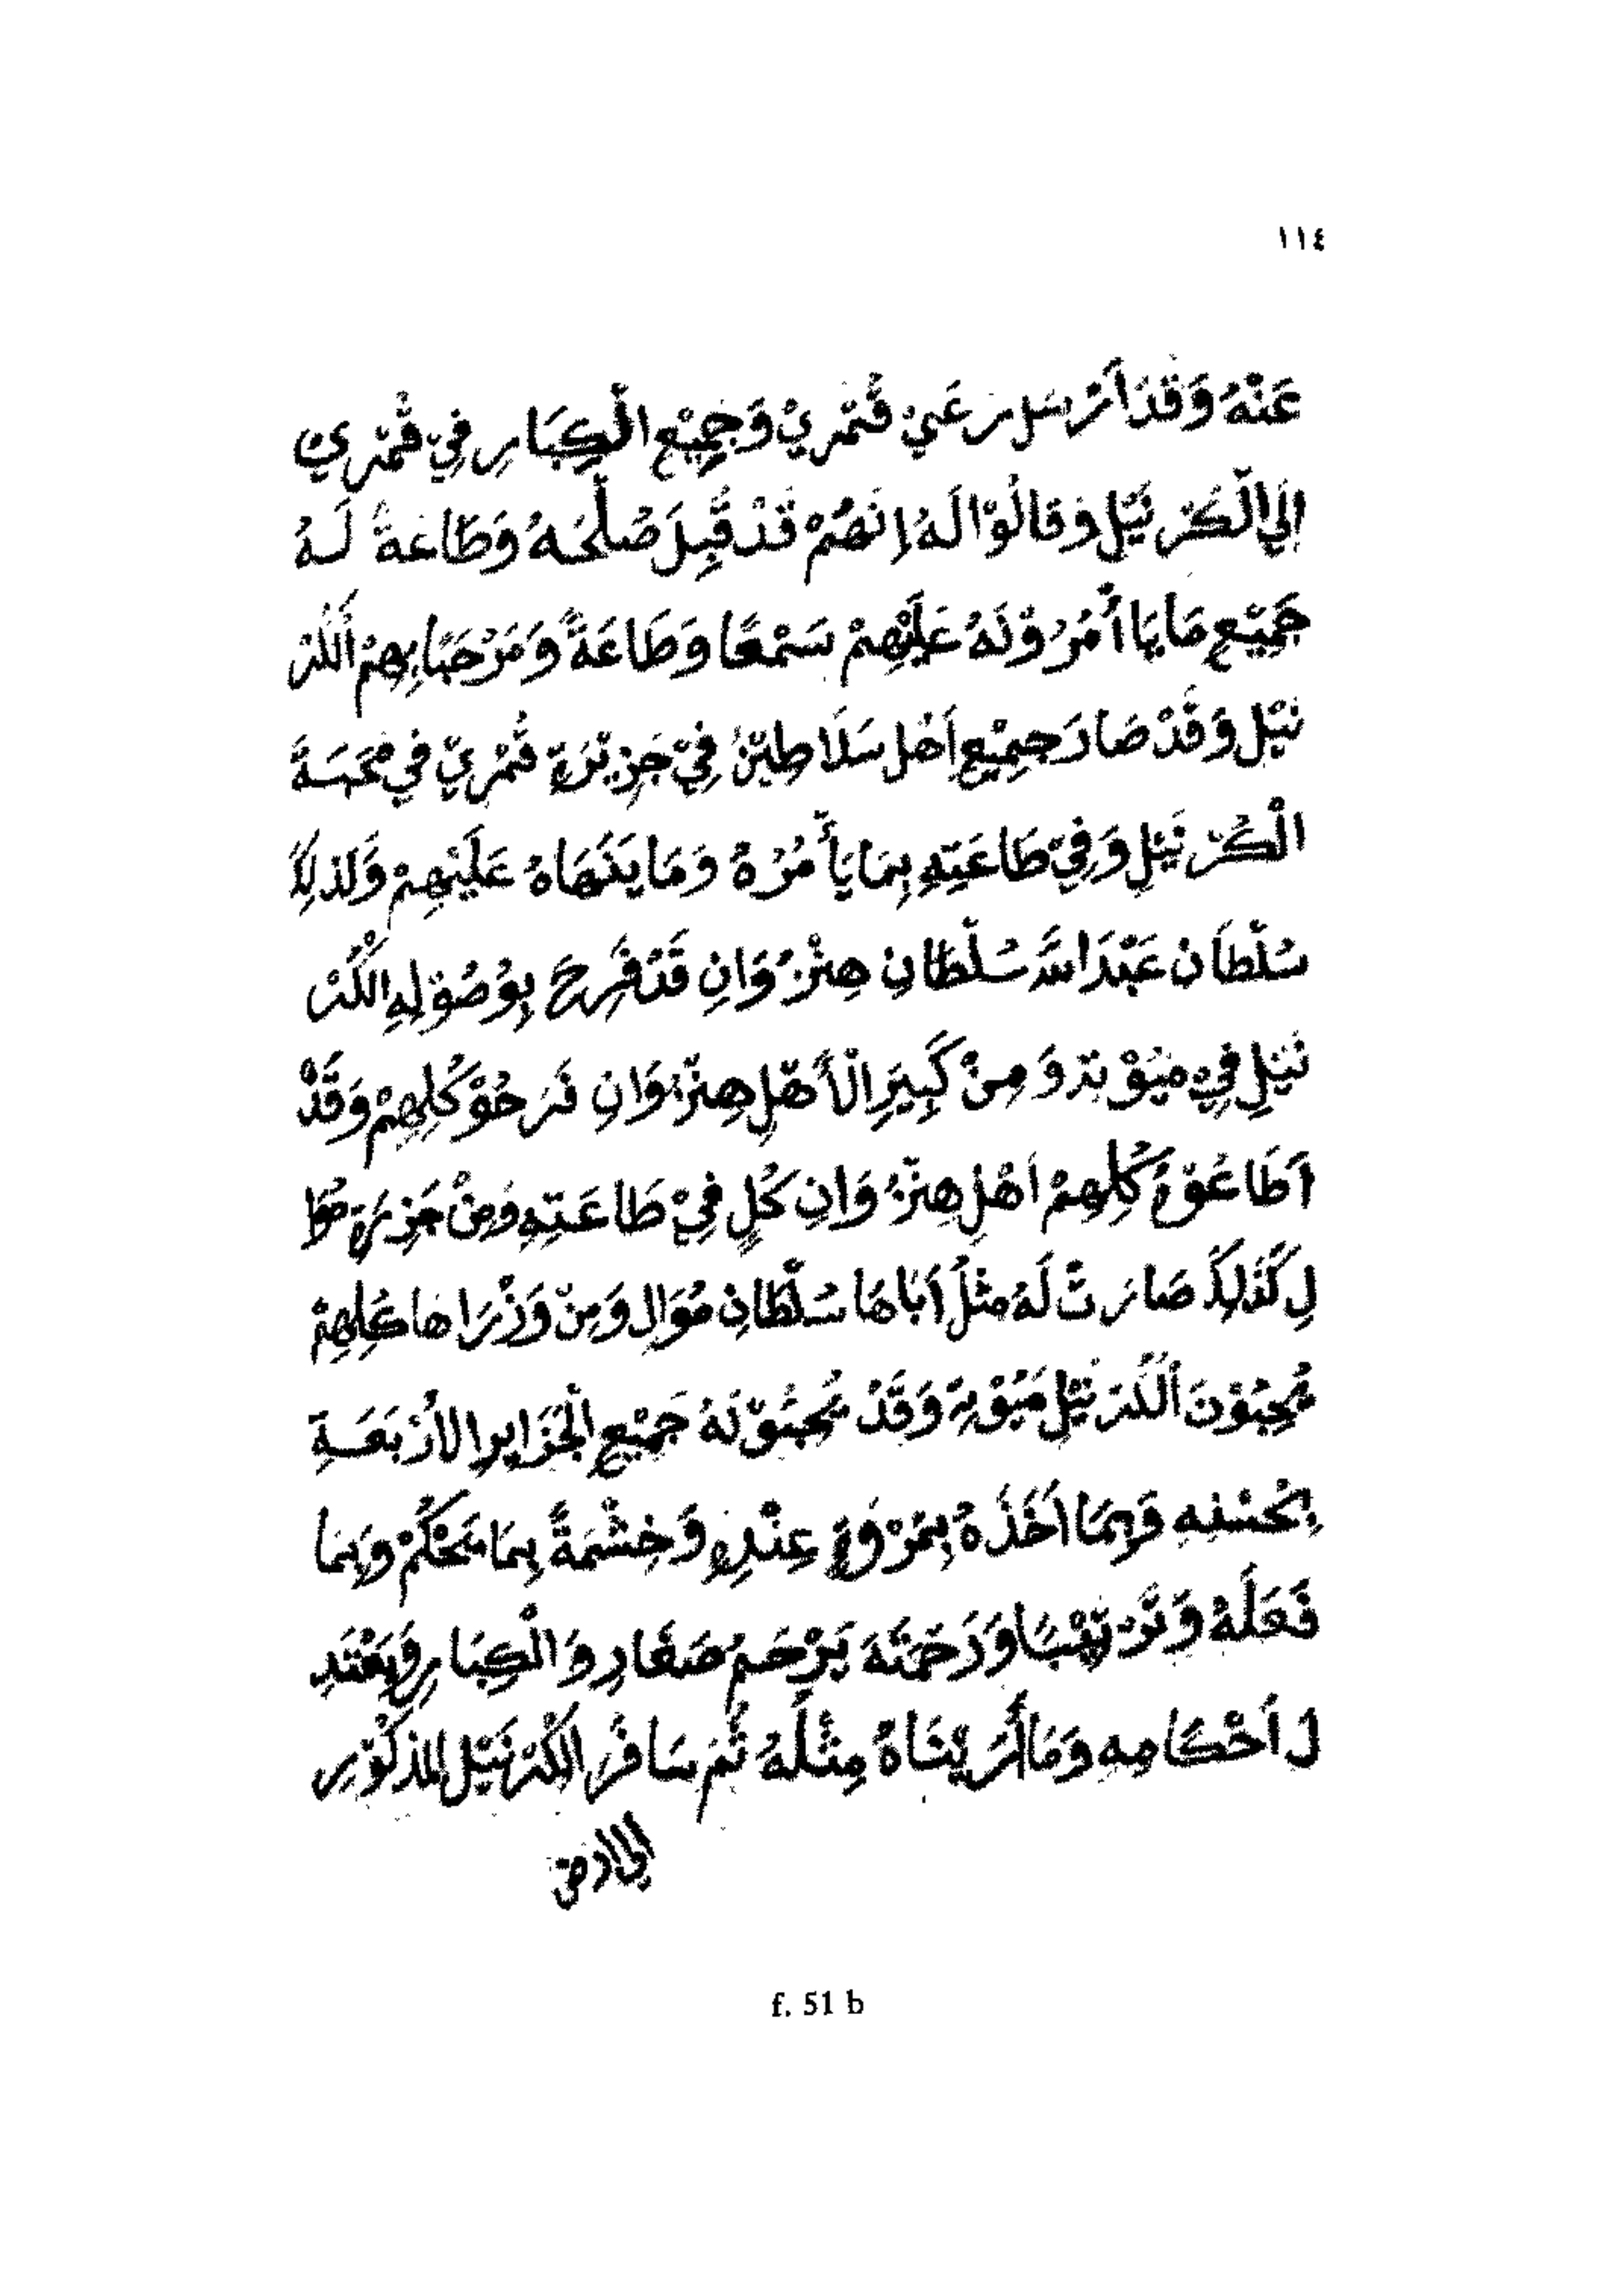 ١١٤
عَنْهُ وَقَدْ اَرْسَل رَعَيْ قُمْرِيْ وَجَمِيْع الْكِبَارِ فِيْ قُمْرِيْ
اِلَي الْكُرْنَيْلِ وَقَالُوْا لَهُ اِنَهُمْ قَدْ قَبِلَ صُلْحَهُ وَطَاعَةُ لَهُ
جَمِيْعِ مَا يَا أْمُرُوْنَهُ عَلَيْهِمْ سَمْعًا وَطَاعَةً وَمَرْحَبًا بِهِمْ اَلْكُرْ
نَيْل وَقَدْ صَارَ جَمِيْعِ اَهْل سَلَاطِيْنْ فِيْ جَزِيْرَةِ قُمْرِيْ فِي مَحَبَةَ
الْكُرْنَيْلِ وَفِيْ طَاعَتِهِ بِمَا يَأْمُرُهُ وَمَا يَنْهَاهُ عَلَيْهِمْ وَلَذلِكَ
سُلْطَان عَبْدَ اللَّه سُلْطَانِ هِنْزُوَانِ قَدْ فَرِحَ بِوُصُوْلِهِ الْكُرْ
نَيْلِ فِيْ مَيُوْتَة وَمِنْ كَبِيَرِ الْأَهْلِ هِنْزُوَانِ فَرَحُوْ كُلِهِمْ وَقَدْ
اَطَاعُوْهُ كُلِهِمْ اَهْلِ هِنْزُوَانِ كُلٍ فِيْ طَاعَتِهِ وَمِنْ جَزِيْرَة مُوَا
لِ كَذَلِكَ صَارَتْ لَهُ مِثْلُ اَبَاهَا سُلْطَانِ مُوَالِ وَمِنْ وَزْرَاهَا كُلِهِمْ
يُحِبُوْنَ اَلْكُرْنَيْل مَيُوْتَة وَقَدْ يُحِبُوْنَهُ جَمِيْعِ الْجَزَايِرِ الاَرْبَعَةِ
بِحُسْنِهِ وَبِمَا اَخَذَهُ بِمُرْوَةٍ عِنْدِهِ وَحِشْمَةً بِمَا يَحْكُمْ وَبِمَا
فَعَلَهُ وَتَرْتِيْبًا وَرَحْمَتَهَ يَرْحَمُ صَغَارِ وَالْكِبَارِ وَيَعْتَدِ
لَ اَحْكَامِهِ وَمَا أَرَيْنَاهُ مِثْلَهُ ثُمَ سَافَرَ اَلْكُرْنَيْلِ المَذكُوْرِ
f. 51 b